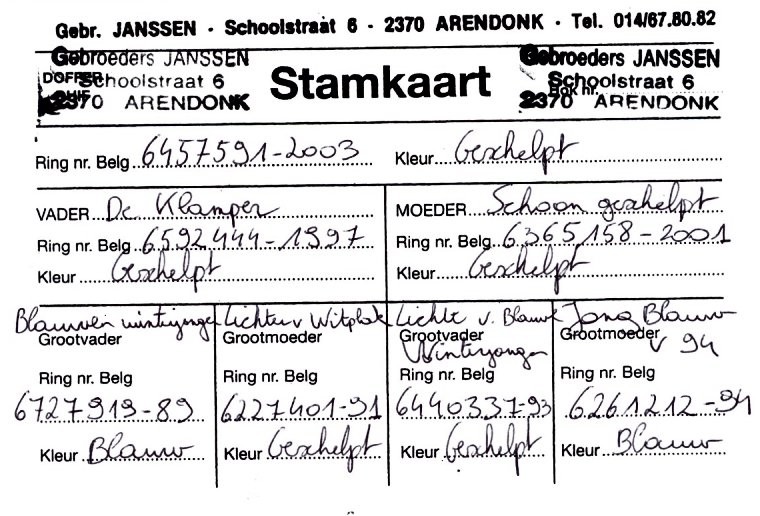 Gebr. JANSSEN - Schoolstraat 6 - 2370 ARENDONK - Tel. 014/67.80.82
Gebroeders JANSSEN
Schoolstraat 6
2370 ARENDONK
DOFFER
Stamkaart
Gebroeders JANSSEN
Schoolstraat 6
2370 ARENDONK
Hok nr.
Ring nr. Belg 6457591-2003 Kleur Geschelpt
VADER De Klamper
Ring nr. Belg 6592444-1997
Kleur Geschelpt
MOEDER Schoon geschelpt
Ring nr. Belg 6365158-2001
Kleur Geschelpt
Blauwen winterjonge
Grootvader
Ring nr. Belg
6727919-89
Kleur Blauw
Lichte v Witplak
Grootmoeder
Ring nr. Belg
6227401-91
Kleur Geschelpt
Lichte v. Blauwe
Grootvader
Winterjonge
Ring nr. Belg
6440337-93
Kleur Geschelpt
Jong Blauw
Grootmoeder
v 94
Ring nr. Belg
6261212-94
Kleur Blauw